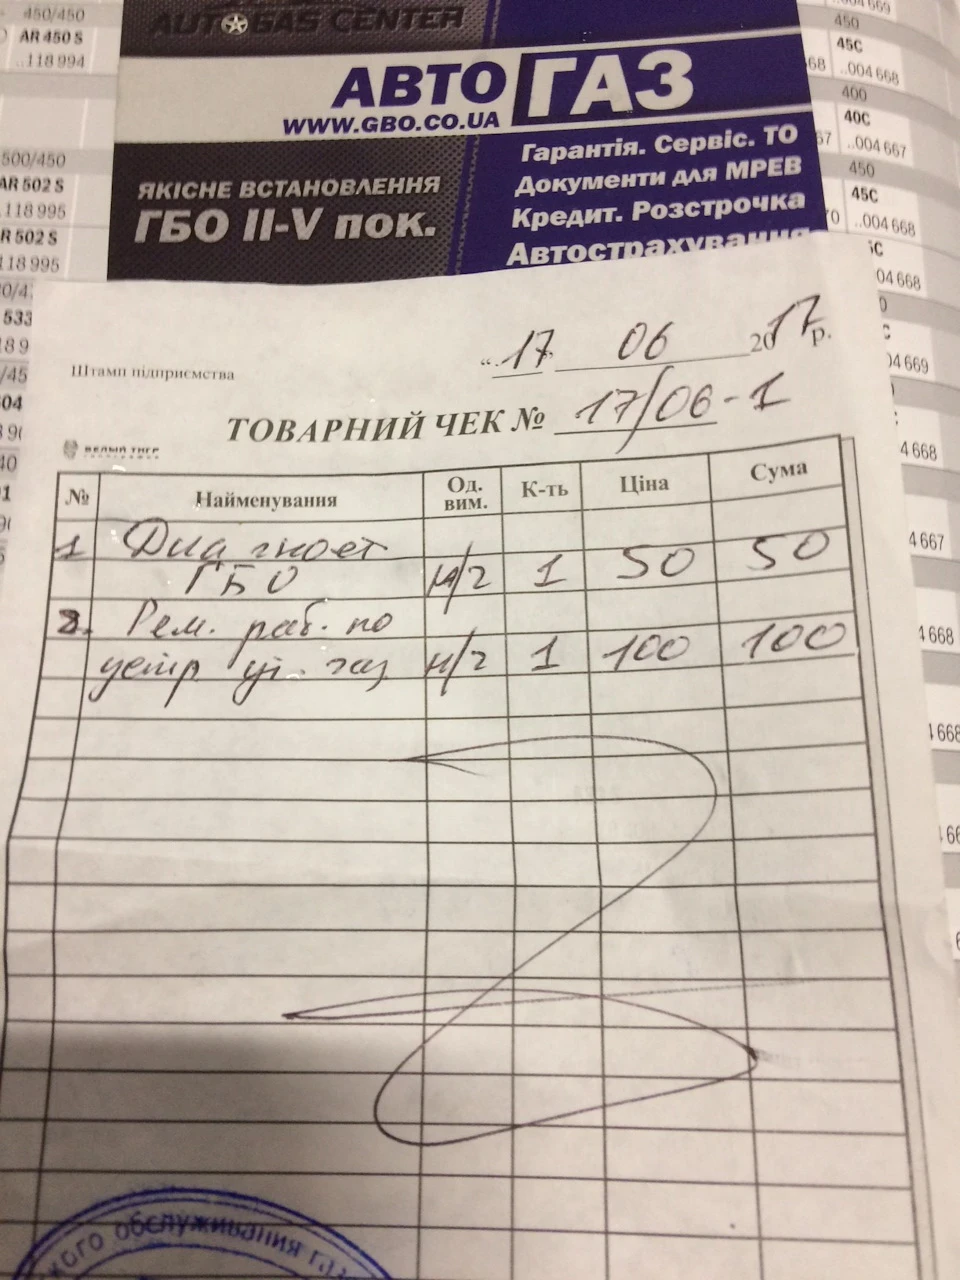 AUTOGAS CENTER
АВТО ГАЗ
WWW.GBO.CO.UA
ЯКІСНЕ ВСТАНОВЛЕННЯ
ГБО II-V пок.
Гарантія. Сервіс. ТО
Документи для МРЕВ
Кредит. Розстрочка
Автострахування
450/450
AR 450 S
..118 994
500/450
AR 502 S
118 995
R 502 S
118 995
533
450
45C
..004 668
400
40C
..004 667
450
45C
..004 668
04 668
04 669
4 668
4 667
4 668
"17" 06 2017 р.
Штамп підприємства
ТОВАРНИЙ ЧЕК № 17/06-1
№ Найменування Од. вим. К-ть Ціна Сума
1 Диагност
ГБО н/г 1 50 50
2. Рем. раб. по
устр. ут. газ н/г 1 100 100
кого обслуживания газ